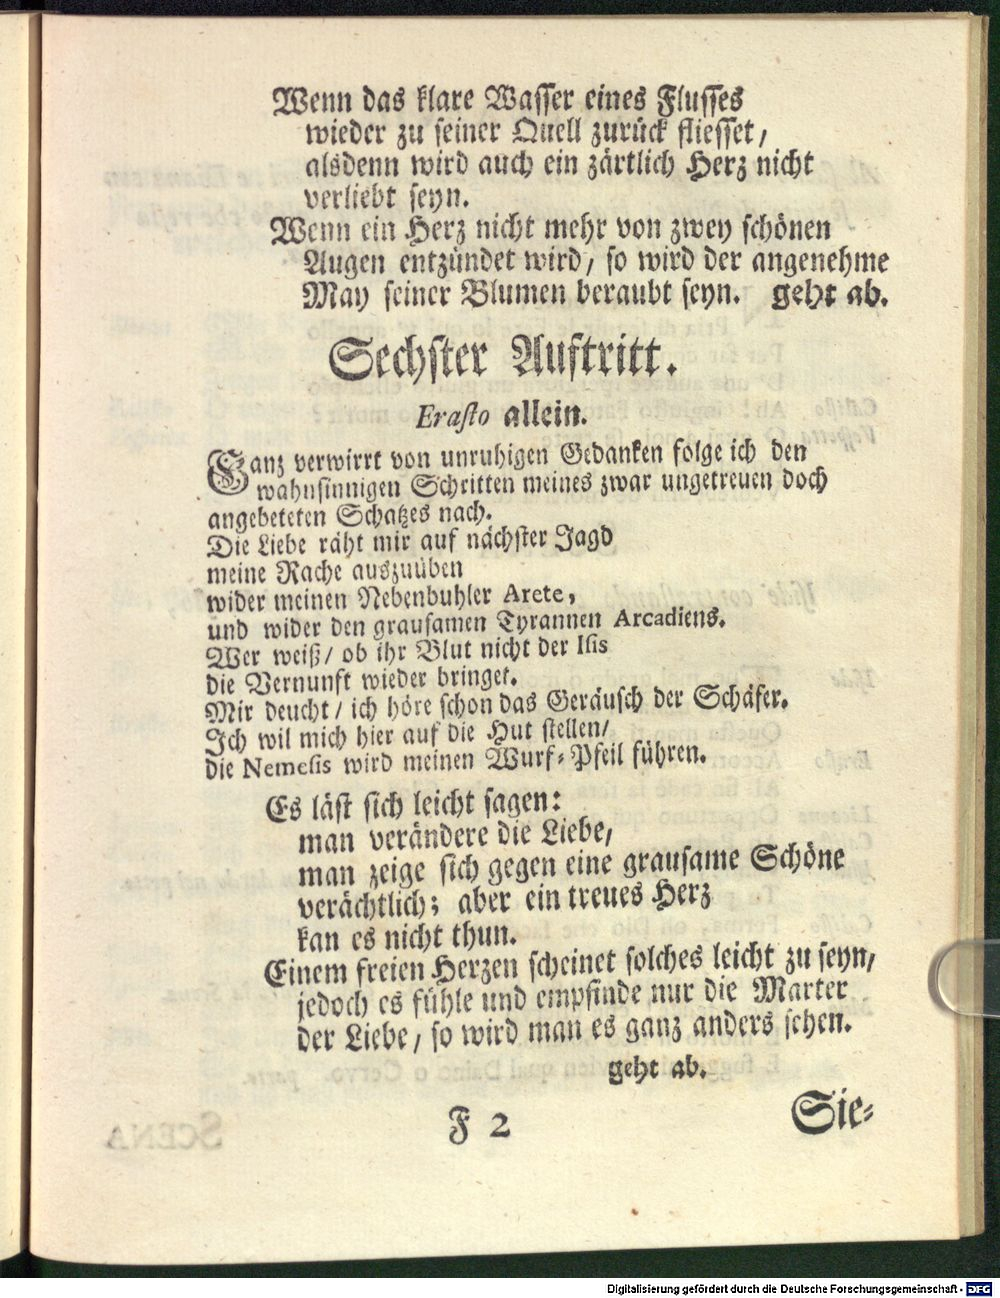 Wenn das klare Wasser eines Flusses
wieder zu seiner Quell zurück fliesset/
alsdenn wird auch ein zärtlich Herz nicht
verliebt seyn.
Wenn ein Herz nicht mehr von zwey schönen
Augen entzündet wird/ so wird der angenehme
May seiner Blumen beraubt seyn. geht ab.
Sechster Auftritt.
Erasto allein.
Ganz verwirrt von unruhigen Gedanken folge ich den
wahnsinnigen Schritten meines zwar ungetreuen doch
angebeteten Schatzes nach.
Die Liebe räht mir auf nächster Jagd
meine Rache auszuüben
wider meinen Nebenbuhler Arete,
und wider den grausamen Tyrannen Arcadiens.
Wer weiß/ ob ihr Blut nicht der Isis
die Vernunft wieder bringet.
Mir deucht/ ich höre schon das Geräusch der Schäfer.
Ich wil mich hier auf die Hut stellen/
die Nemesis wird meinen Wurf-Pfeil führen.
Es läst sich leicht sagen:
man verändere die Liebe,
man zeige sich gegen eine grausame Schöne
verächtlich; aber ein treues Herz
kan es nicht thun.
Einem freien Herzen scheinet solches leicht zu seyn/
jedoch es fühle und empfinde nur die Marter
der Liebe/ so wird man es ganz anders sehen.
geht ab.
F 2 Sie-
Digitalisierung gefördert durch die Deutsche Forschungsgemeinschaft - DFG